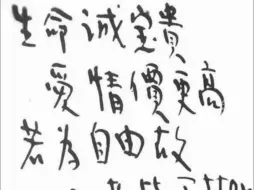 生命诚宝贵
爱情價更高
若为自由故